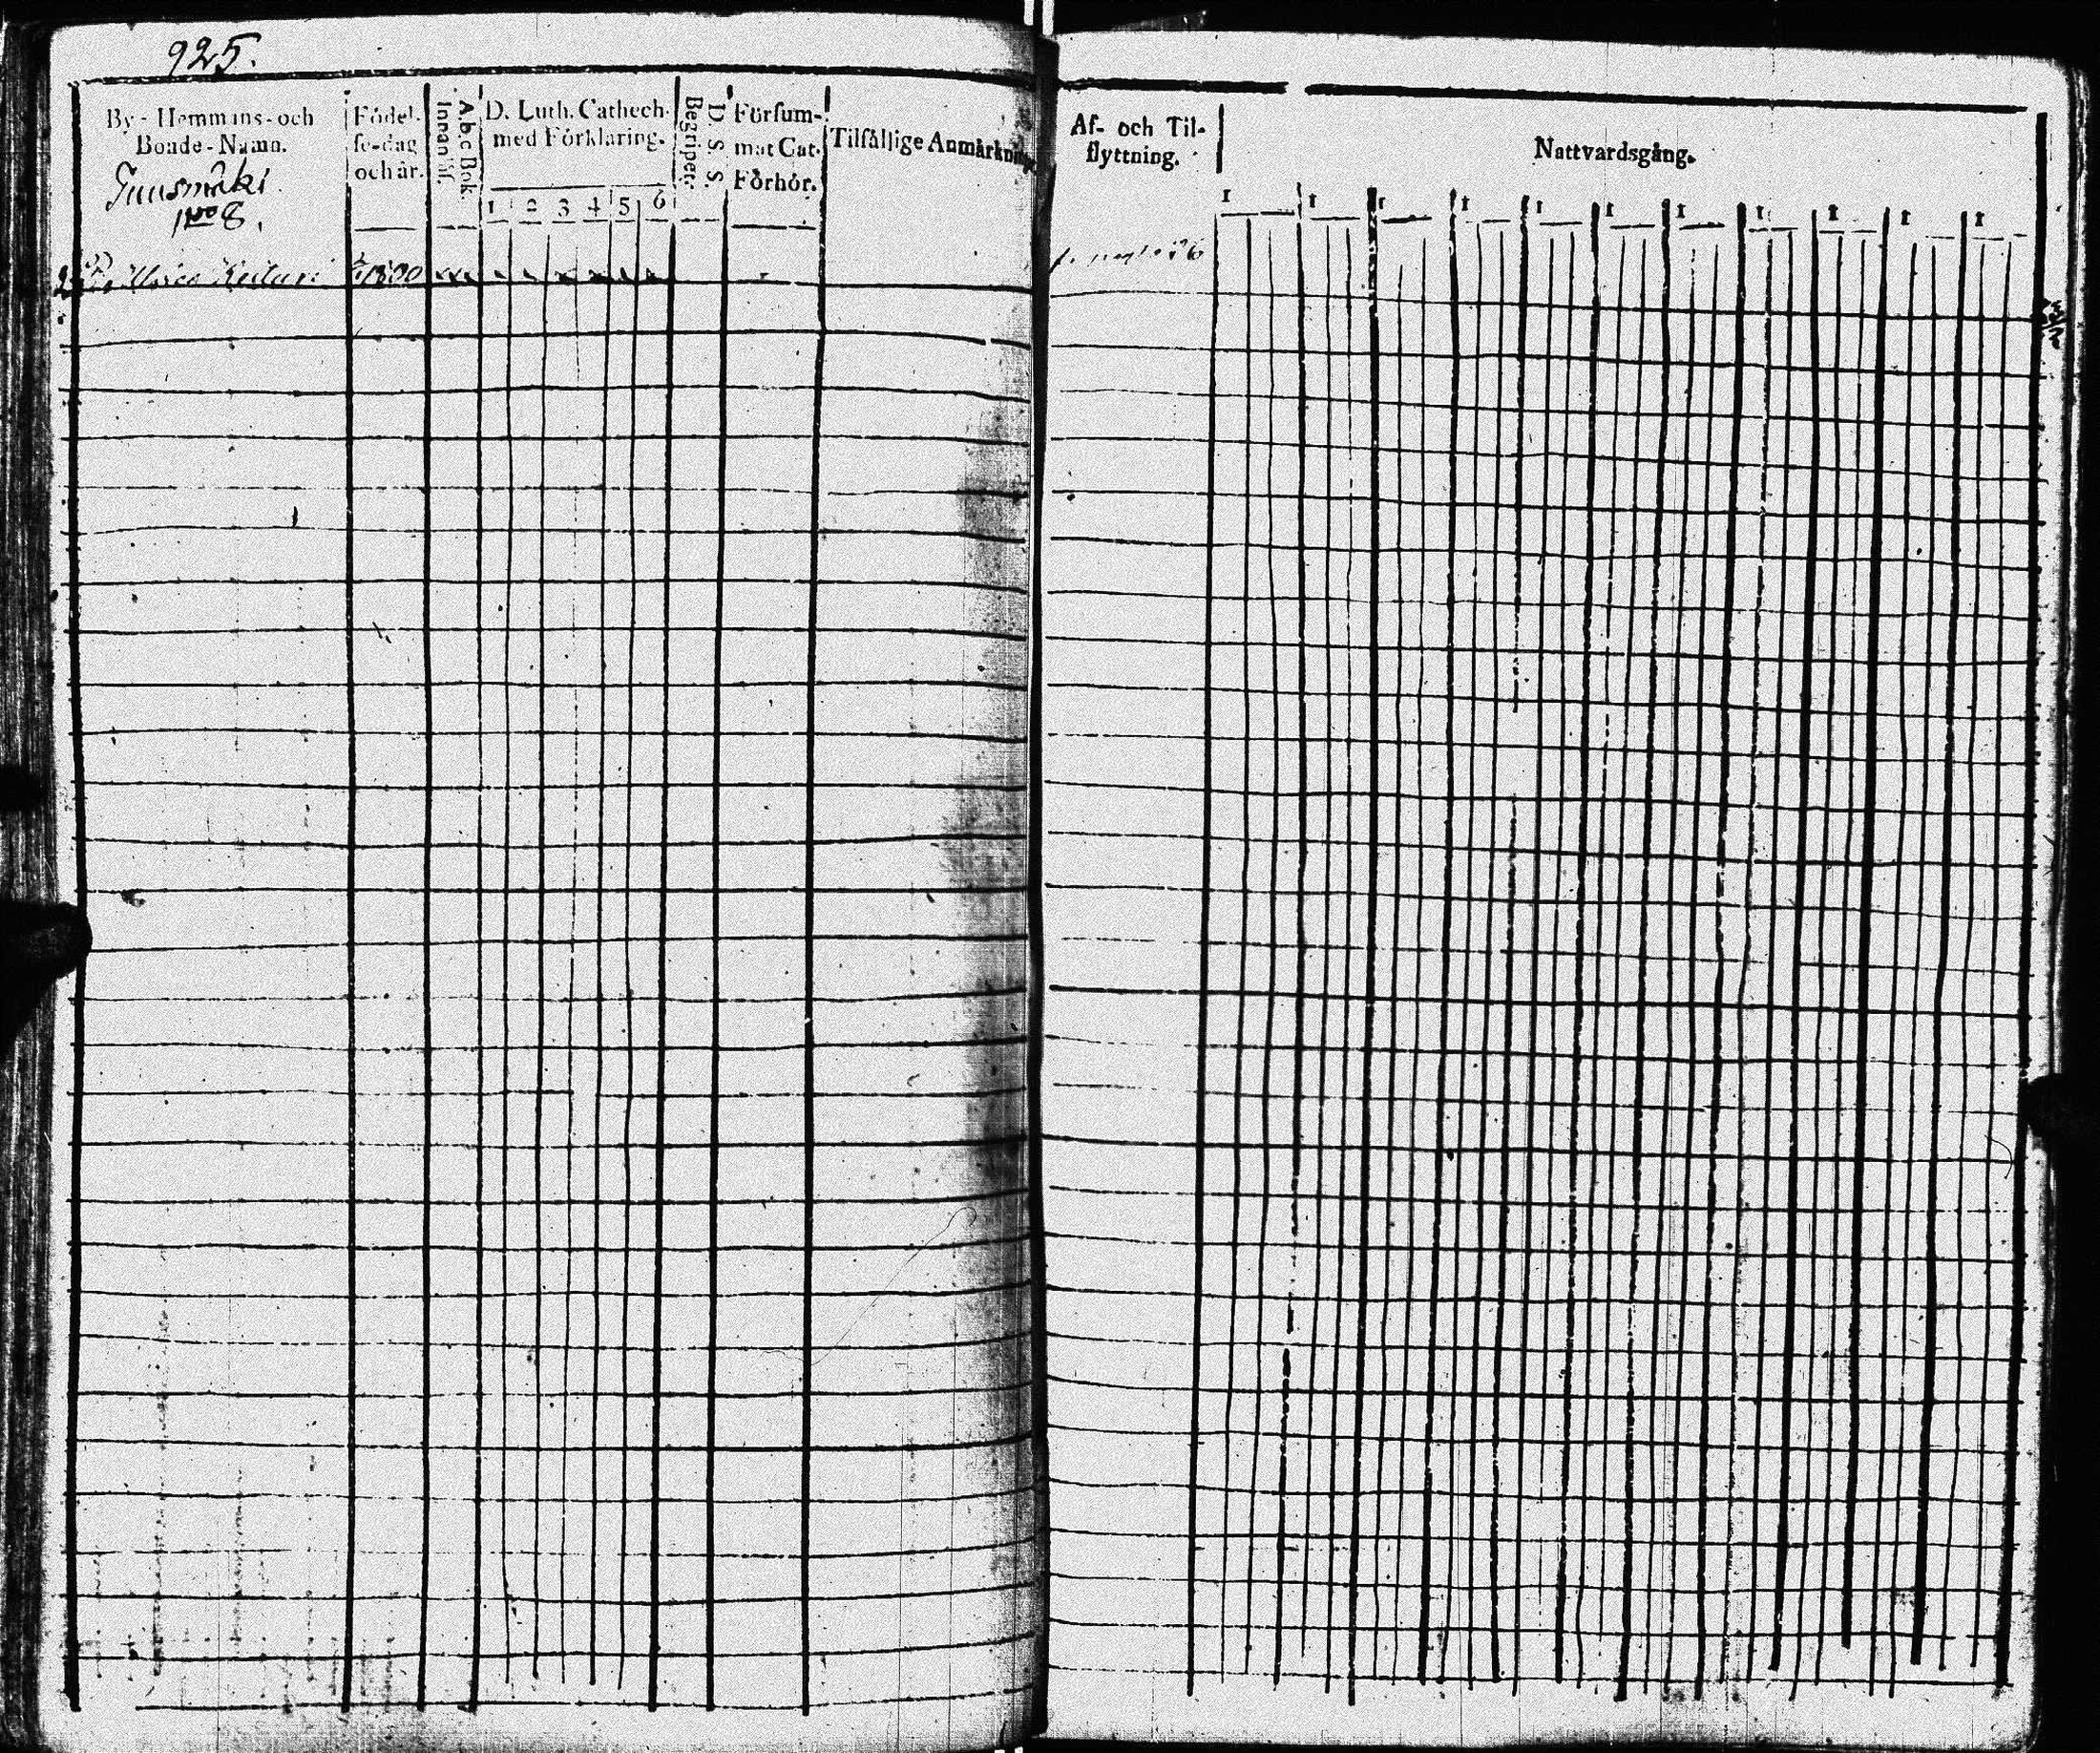 925.
By-Hemmans-och
Bonde-Namn.
Födel-
se-dag
och år.
A.b.c Bok.
Innanläs.
D. Luth. Cathech.
med Förklaring.
1 2 3 4 5 6
D. S. S.
Begriper.
Försum-
mat Cat.
Förhör.
Tilfällige Anmärkningar
No 8.
1800
Af- och Til-
flyttning.
Nattvardsgång.
1 1 1 1 1 1 1 1 1 1 1